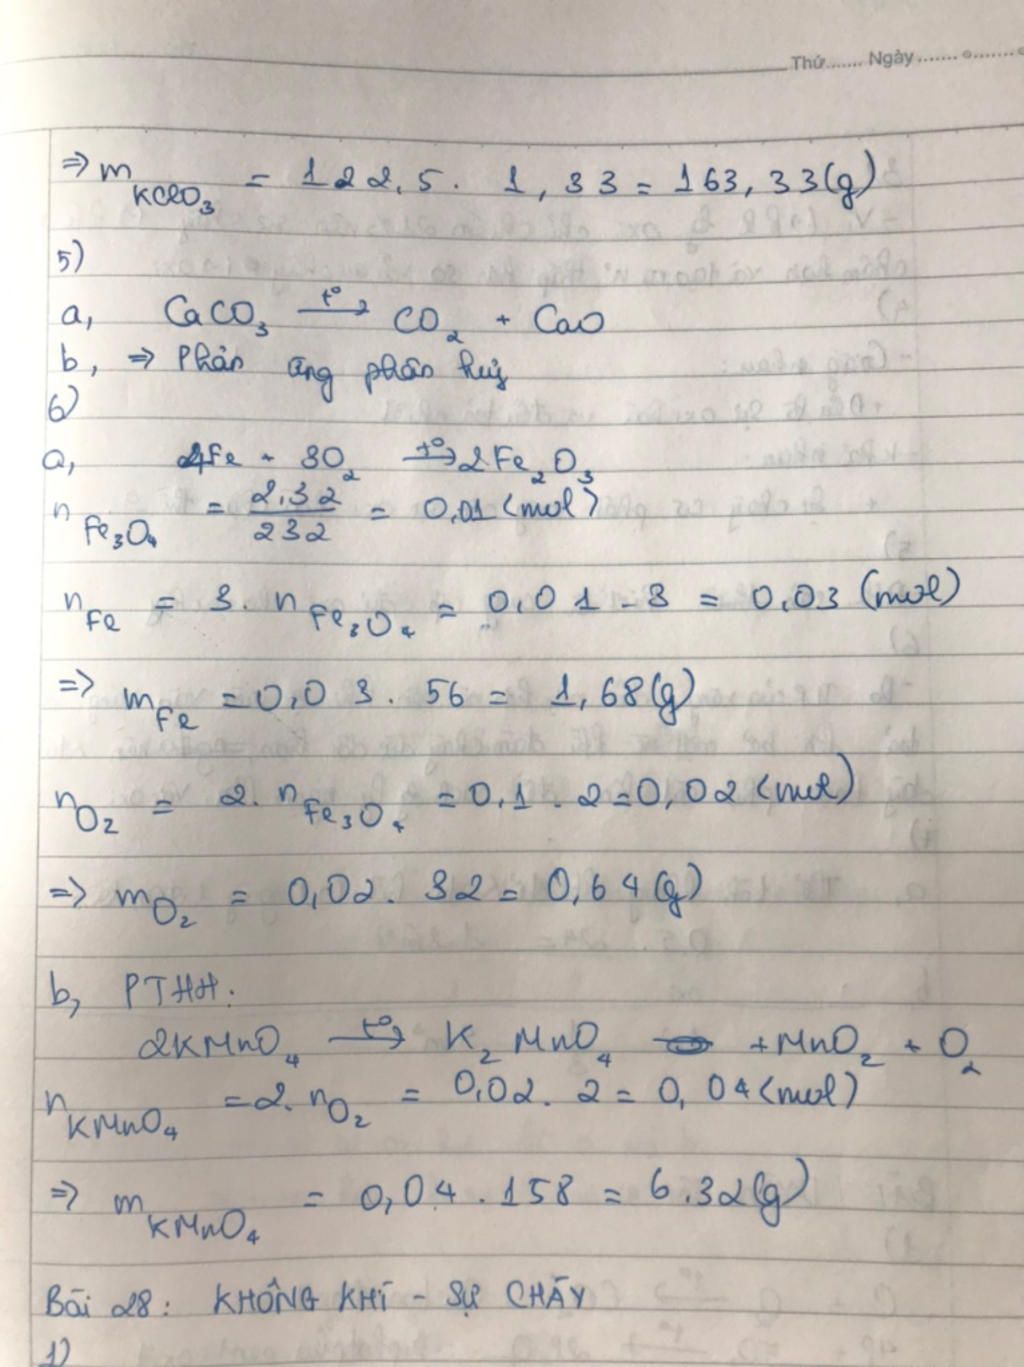 Thứ....... Ngày.......
⇒ m KClO₃ = 122,5. 1,33 = 163,33(g)
5)
a, CaCO₃ —t°→ CO₂ + CaO
b, ⇒ Phản ứng phân huỷ
6)
a, 4Fe + 3O₂ —t°→ 2Fe₂O₃
n Fe₃O₄ = 2,32/232 = 0,01 (mol)
n Fe = 3. n Fe₃O₄ = 0,01 . 3 = 0,03 (mol)
⇒ m Fe = 0,03. 56 = 1,68(g)
n O₂ = 2. n Fe₃O₄ = 0,1 . 2 = 0,02 (mol)
⇒ m O₂ = 0,02. 32 = 0,64(g)
b, PTHH:
2KMnO₄ —t°→ K₂MnO₄ + MnO₂ + O₂
n KMnO₄ = 2. n O₂ = 0,02. 2 = 0,04 (mol)
⇒ m KMnO₄ = 0,04.158 = 6.32(g)
Bài 28: KHÔNG KHÍ - SỰ CHÁY
1)